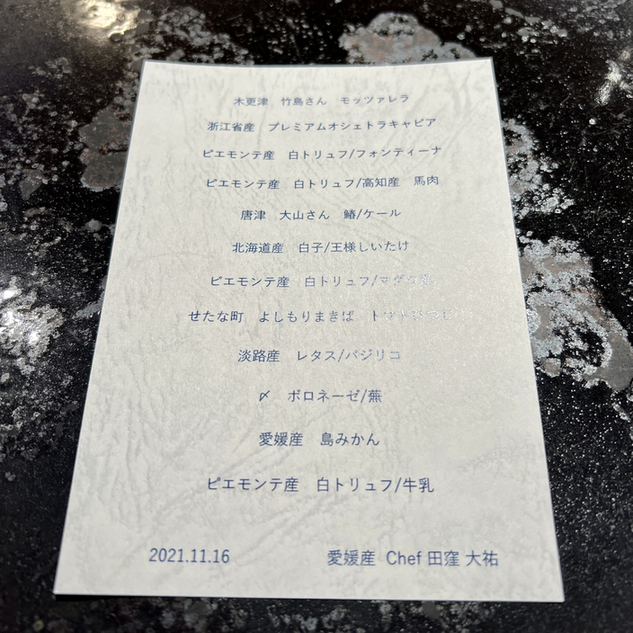 木更津　竹島さん　モッツァレラ
浙江省産　プレミアムオシェトラキャビア
ピエモンテ産　白トリュフ/フォンティーナ
ピエモンテ産　白トリュフ/高知産　馬肉
唐津　大山さん　鰆/ケール
北海道産　白子/王様しいたけ
ピエモンテ産　白トリュフ/
せたな町　よしもりまきば
淡路産　レタス/バジリコ
〆　ボロネーゼ/蕪
愛媛産　島みかん
ピエモンテ産　白トリュフ/牛乳
2021.11.16　愛媛産 Chef 田窪 大祐